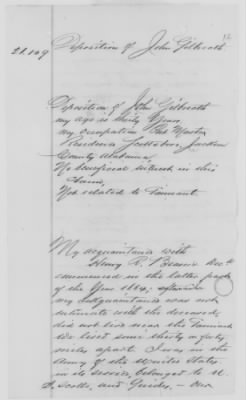 12
21.409 Deposition of John Gilbreath
Deposition of John Gilbreath
my age is thirty Years
my occupation Post Master
Residence Scottsboro, Jackson
County Alabama,
No beneficial interest in this
Claim,
Not related to Claimant.
My acquaintance with
Henry R. Decd
commenced in the latter part
of the Year 1864;
my acquaintance was not
intimate with the deceased,
did not live near the Claimant
We lived some thirty or forty
miles apart I was in the
Army of the United States
in its service, belonged to U.
S. Scouts, and Guides, – Our